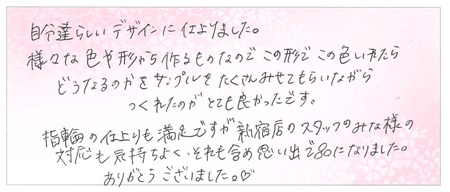 自分達らしいデザインに仕上りました。
様々な色や形から作るものなのでこの形でこの色いれたら
どうなるのかをサンプルをたくさんみせてもらいながら
つくれたのがとても良かったです。
指輪の仕上りも満足ですが新宿店のスタッフのみな様の
対応も気持ちよく、それも含め思い出になりました。
ありがとうございました。♡